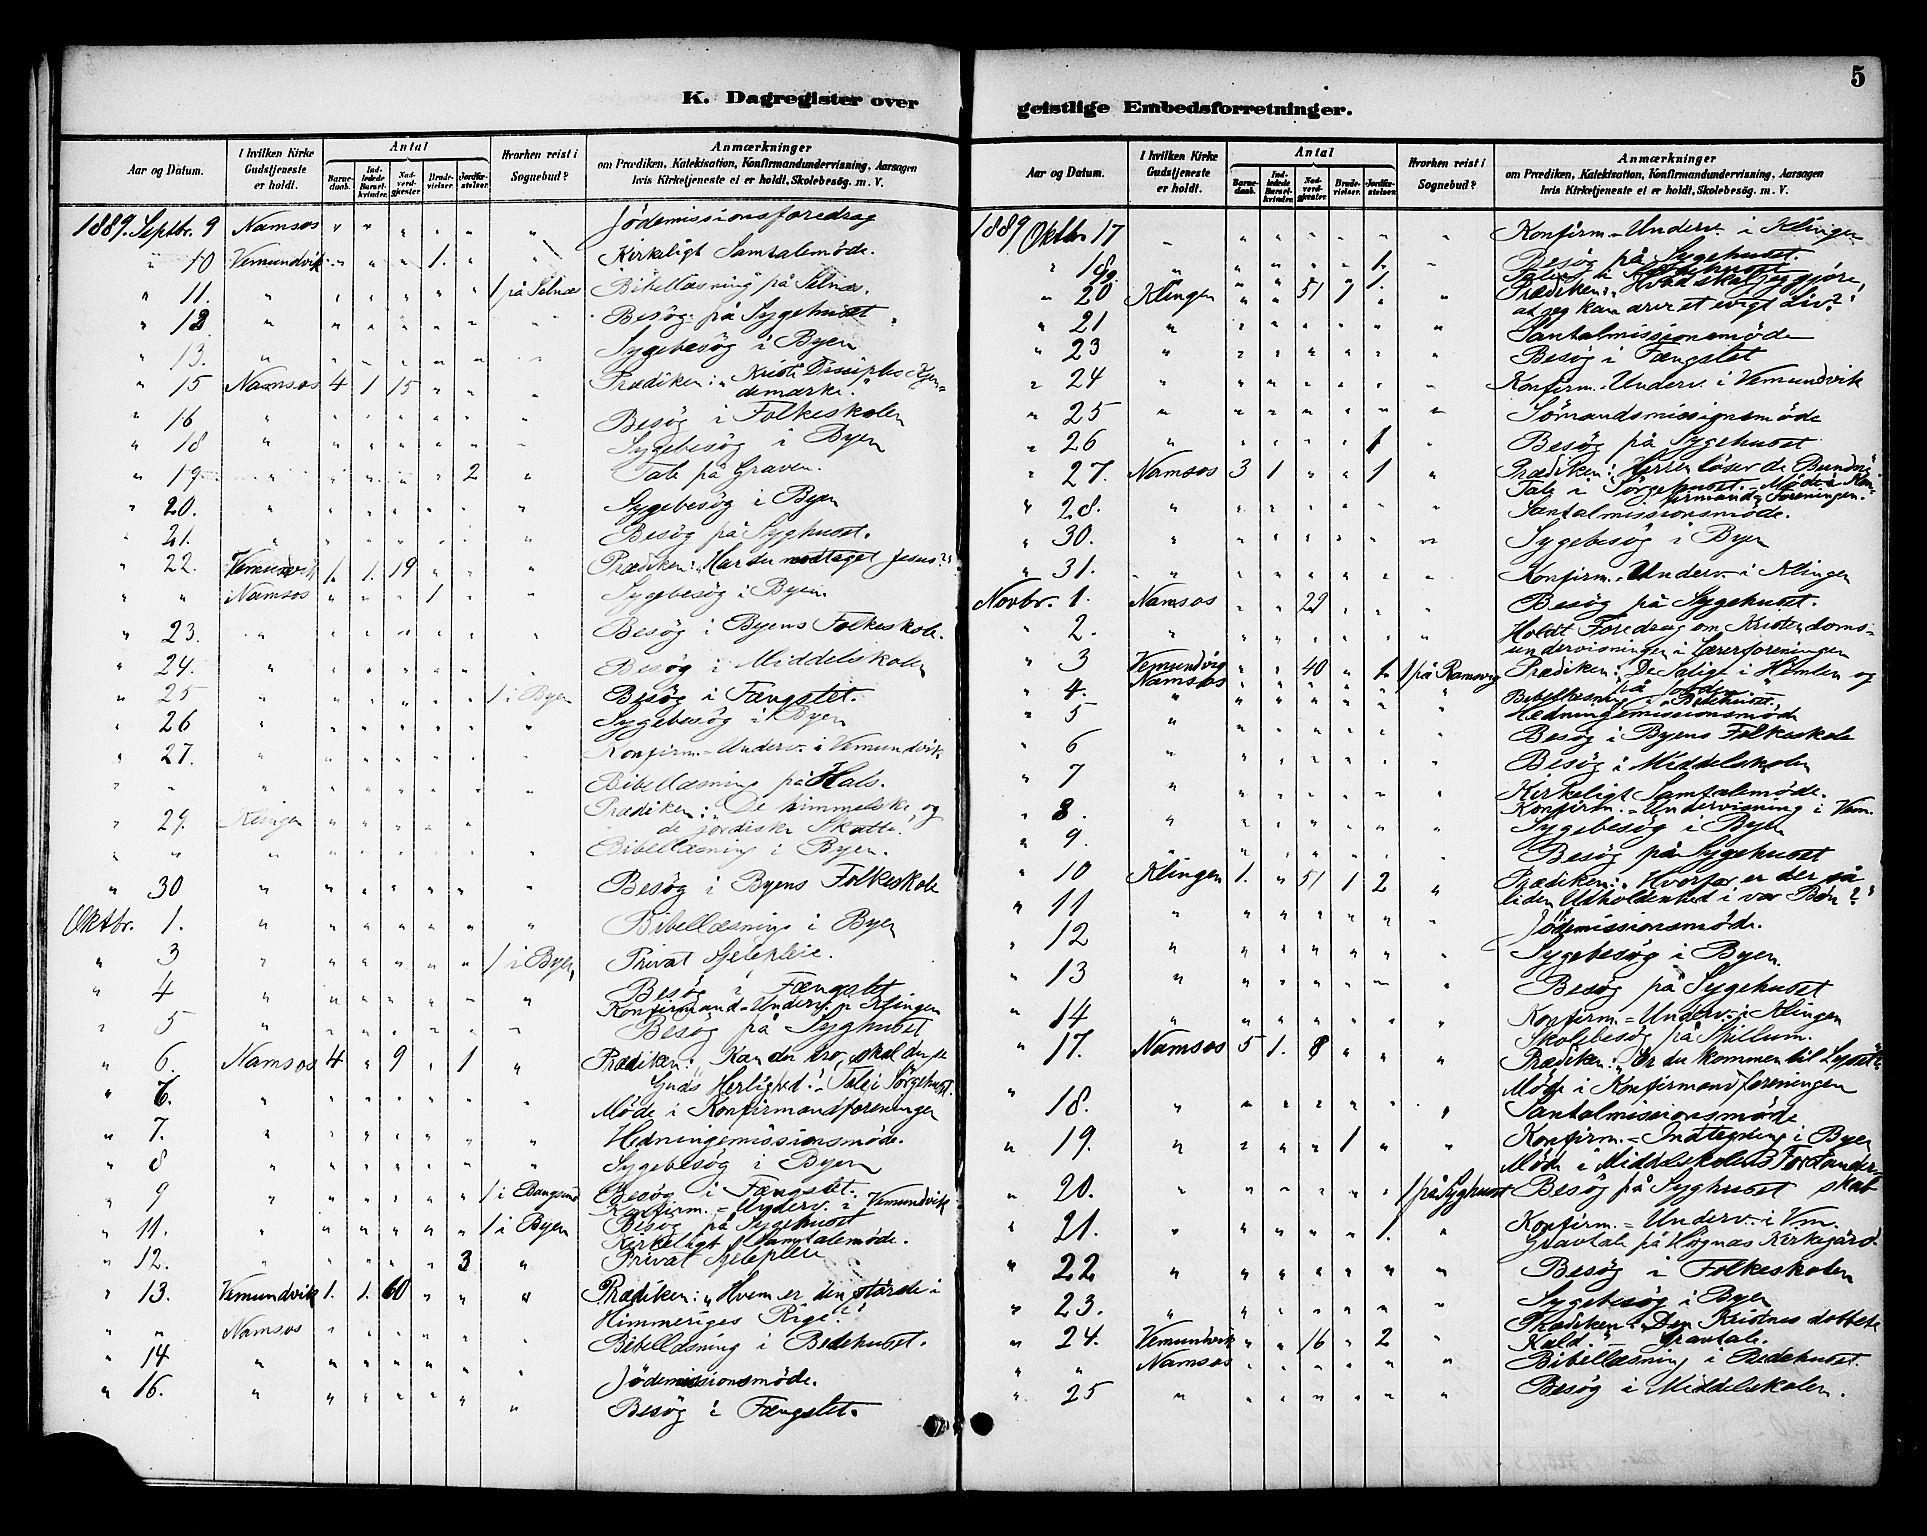 5
K. Dagregister over geistlige Embedsforretninger.
Aar og Datum. | I hvilken Kirke Gudstjeneste er holdt. | Antal | Barnedaab. | Indledede Barselkvinder. | Nadverdgjester. | Brudevielser. | Jordfæstelser. | Hvorhen reist i Sognebud? | Anmærkninger om Prædiken, Katekisation, Konfirmandundervisning, Aarsagen hvis Kirketjeneste ei er holdt, Skolebesøg. m. V.
1889. Septbr. 9 Namsos " " " " " " Jödemissionsforedrag
" 10 Vemundvik " " " 1. " " Kirkeligt Samtalemöde.
" 11. " " " " " " 1 på Selnæs Bibellæsning på Selnæs.
" 12 " " " " " " " Besög på Sygehuset
" 13. " " " " " " " Sygebesög i Byen
" 15 Namsos 4 1 15 " " " Prædiken: "Kristi Disciples Kjendemærke."
" 16 " " " " " " " Besög i Folkeskolen
" 18 " " " " " " " Sygebesög i Byen
" 19 " " " " " 2 " Tale på Graven.
" 20. " " " " " " " Sygebesög i Byen
" 21. " " " " " " " Besög på Syghuset.
" 22. Vemundvik 1. 1. 19 " " " Prædiken: "Har du modtaget Jesus?"
" " Namsos " " " 1 " " Sygebesög i Byen
" 23. " " " " " " " Besög i Byens Folkeskole.
" 24. " " " " " " " Besög i Middelskolen
" 25 " " " " " " 1 i Byen Besög i Fængslet.
" 26 " " " " " " " Sygebesög i Byen
" 27. " " " " " " " Konfirm.=Underv. i Vemundvik
" " " " " " " " " Bibellæsning på Hals.
" 29. Klingen " " " " " " Prædiken: "De himmelske og de jordiske Skatte."
" " " " " " " " " Bibellæsning i Byen.
" 30 " " " " " " " Besög i Byens Folkeskole
Oktbr. 1. " " " " " " " Bibellæsning i Byen
" 3 " " " " " " 1 i Byen, Privat Sjelepleie.
" 4 " " " " " " " Besög i Fængslet
Konfirmand=Underv. i Klingen
" 5 " " " " " " " Besög på Syghuset
" 6. Namsos 4 " 9 " 1 " Prædiken: "Kan du tro, skal du se Guds Herlighed." Tale i Sörgehuset.
" 6. " " " " " " " Möde i Konfirmandforeningen
" 7. " " " " " " " Hedningemissionsmöde.
" 8 " " " " " " " Sygebesög i Byen
" 9 " " " " " " 1 i Bangsund Besög i Fængslet.
Konfirm.=Underv. i Vemundvik
" 11. " " " " " " 1 i Byen Besög på Sygehuset
Kirkeligt Samtalemöde.
" 12. " " " " " 3 " Privat Sjelepleie
" 13. Vemundvik 1. 1. 60 " " " Prædiken: "Hvem er den störste i Himmeriges Rige?"
" " Namsos " " " " " " Bibellæsning i Bedehuset.
" 14 " " " " " " " Jödemissionsmöde.
" 16. " " " " " " " Besög i Fængslet.
Aar og Datum. | I hvilken Kirke Gudstjeneste er holdt. | Antal | Barnedaab. | Indledede Barselkvinder. | Nadverdgjester. | Brudevielser. | Jordfæstelser. | Hvorhen reist i Sognebud? | Anmærkninger om Prædiken, Katekisation, Konfirmandundervisning, Aarsagen hvis Kirketjeneste ei er holdt, Skolebesøg. m. V.
1889 Oktbr. 17 " " " " " " " Konfirm.=Underv. i Klingen
" 18 " " " " " 1. " Besög på Sygehuset.
19. " " " " " 1. Tale i Sörgehuset
" 20 Klingen " " 51 1 " " Prædiken: "Hvad skal jeg gjöre, at jeg kan arve et evigt Liv?"
" 21 " " " " " " " Santalmissionsmöde
" 23 " " " " " " " Besög i Fængslet
" 24 " " " " " " " Konfirm.=Underv. i Vemundvik
" 25 " " " " " " " Sömandsmissionsmöde
" 26 " " " " " 1 " Besög på Sygehuset
" 27. Namsos 3 1 " " 1 " Prædiken: "Herren löser de Bundne."
Tale i Sörgehuset. Möde i Konfirmandforeningen.
" 28. " " " " " " " Santalmissionsmöde.
" 30. " " " " " " " Sygebesög i Byen
" 31. " " " " " " " Konfirm.=Underv. i Klingen
Novbr. 1. Namsos " " 29 " " " Besög på Sygehuset.
" 2. " " " " " " " Holdt Foredrag om Kristendomsundervisningen i Lærerforeningen
" 3 Vemundvig " " 40 " 1. 1 på Ramsvig Prædiken: "De Salige i Himlen og på Jorden."
" 4. Namsos " " " " " " Bibellæsning i Bedehuset,
" 5 " " " " " " " Hedningemissionsmöde
" 6 " " " " " " " Besög i Byens Folkeskole
" 7 " " " " " " " Besög i Middelskolen
Kirkeligt Samtalemöde.
" 8. " " " " " " " Konfirm.=Undervisning i Vem.
Sygebesög i Byen
" 9. " " " " " " " Besög på Sygehuset
" 10 Klingen 1. " 51 1 2 " Prædiken: "Hvorfor er der så liden Udholdenhed i vor Bön?"
" 11 " " " " " " " Jödemissionsmöde.
" 12 " " " " " " " Sygebesög i Byen.
" 13 " " " " " " " Besög på Sygehuset
" 14 " " " " " " " Konfirm.=Underv. i Klingen
Skolebesög på Spillum.
" 17. Namsos 5 1. 8 " " " Prædiken: "Er du kommen til Lyset?"
Möde i Konfirmandforeningen
" 18. " " " " " " " Santalmissionsmöde
" 19. " " " " 1 " " Konfirm.=Indtegning i Byen
Möde i Middelskolens Forstanderskab
" 20. " " " " " " 1 på Syghuset Besög på Syghuset
" 21. " " " " " 1. " Konfirm.=Underv. i Vem.
Gravtale på Högnæs Kirkegård.
" 22 " " " " " " " Besög i Folkeskolen
" 23. " " " " " " " Sygebesög i Byen
" 24. Vemundvik " " 16 " 2 " Prædiken: "Den Kristnes dobbelte Kald." Gravtale.
" " Namsos " " " " " " Bibellæsning i Bedehuset.
" 25 " " " " " " " Besög i Middelskolen.